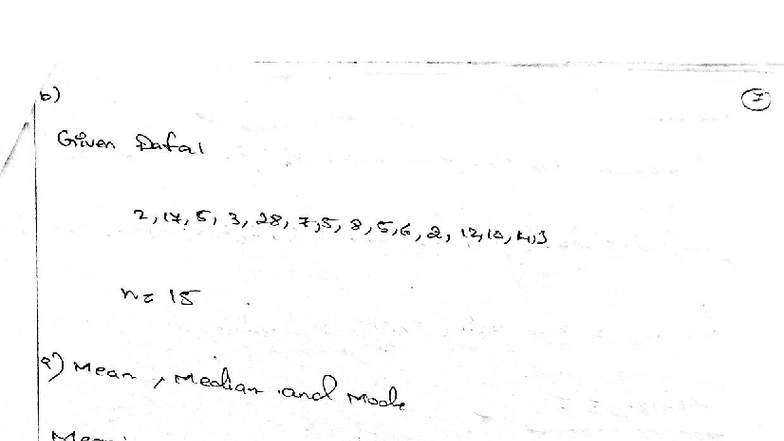 b)
7
Given Data1
2, 17, 5, 3, 28, 7, 5, 8, 5, 6, 2, 12, 10, 4, 3
n = 15
a) Mean, Median and Mode